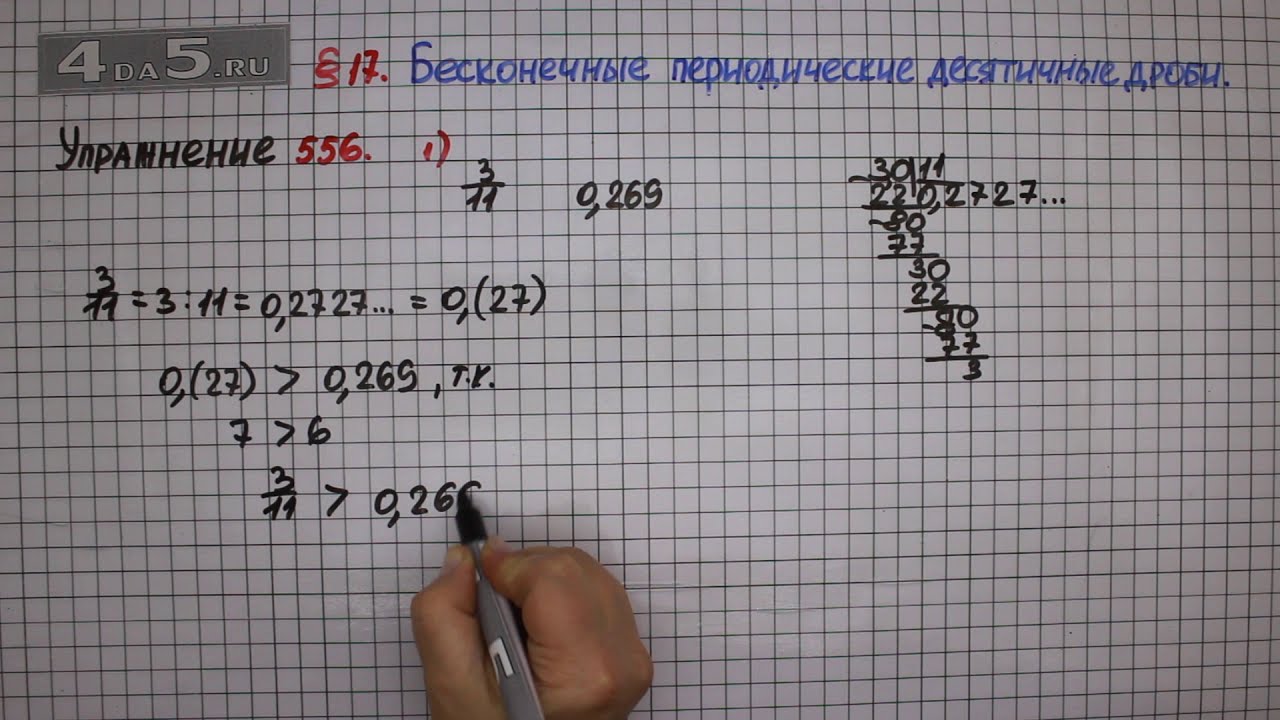 4DA5.RU
§ 17. Бесконечные периодические десятичные дроби.
Упражнение 556. 1)
3/11 0,269
3/11 = 3 : 11 = 0,2727... = 0,(27)
0,(27) > 0,269, т.к.
7 > 6
3/11 > 0,26
30 11
22 0,2727...
80
77
30
22
80
77
3